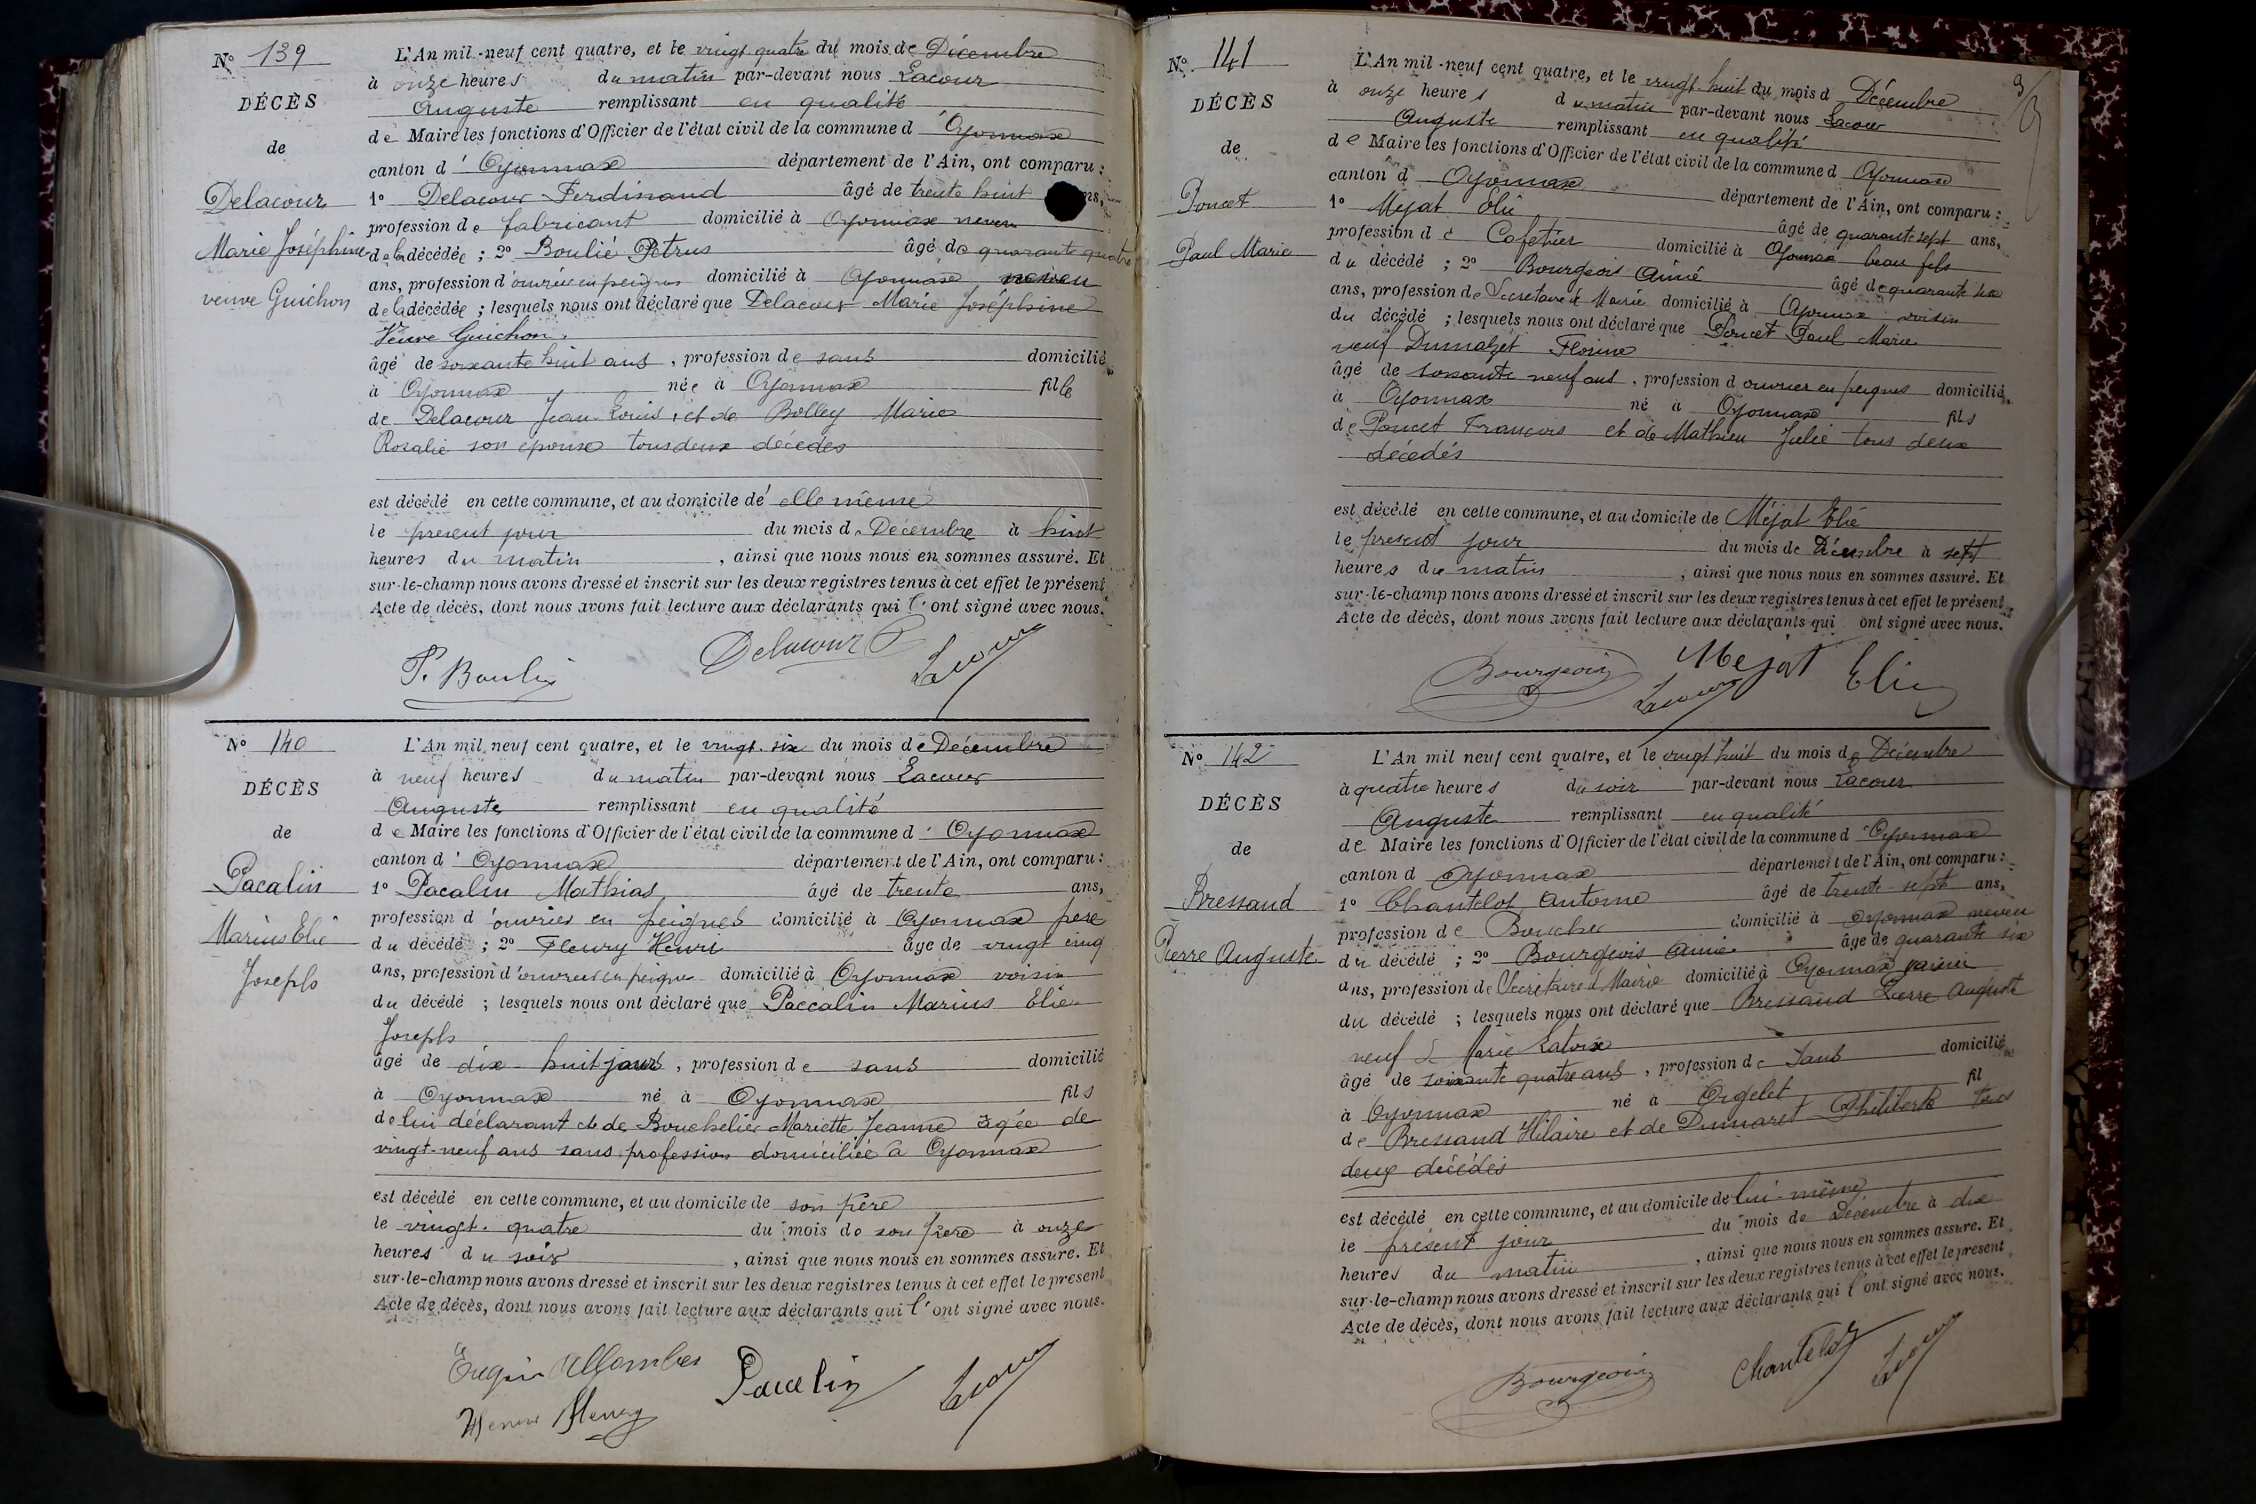 N° 139
DÉCÈS
de
Delacour
Marie Joséphine
veuve Guichon
L'An mil-neuf cent quatre, et le vingt quatre du mois de Décembre
à onze heures du matin par-devant nous Lacour
Auguste remplissant en qualité
de Maire les fonctions d'Officier de l'état civil de la commune d'Oyonnax
canton d'Oyonnax département de l'Ain, ont comparu :
1° Delacour Ferdinand âgé de trente huit ns,
profession de fabricant domicilié à Oyonnax neveu
de la décédée ; 2° Boulié Pétrus âgé de quarante quatre
ans, profession d'ouvrier en peignes domicilié à Oyonnax neveu
de la décédée ; lesquels nous ont déclaré que Delacour Marie Joséphine
Veuve Guichon.
âgé de soixante huit ans, profession de sans domicilié
à Oyonnax née à Oyonnax fille
de Delacour Jean Louis, et de Bolley Marie
Rosalie son épouse tous deux décédés
est décédé en cette commune, et au domicile de elle même
le présent jour du mois de Décembre à huit
heures du matin, ainsi que nous nous en sommes assuré. Et
sur-le-champ nous avons dressé et inscrit sur les deux registres tenus à cet effet le présent
Acte de décès, dont nous avons fait lecture aux déclarants qui l'ont signé avec nous.
P. Boulié Delacour F Lacour
N° 140
DÉCÈS
de
Pacalin
Marius Elie
Joseph
L'An mil neuf cent quatre, et le vingt-six du mois de Décembre
à neuf heures du matin par-devant nous Lacour
Auguste remplissant en qualité
de Maire les fonctions d'Officier de l'état civil de la commune d'Oyonnax
canton d'Oyonnax département de l'Ain, ont comparu :
1° Pacalin Mathias âgé de trente ans,
profession d'ouvrier en peignes domicilié à Oyonnax père
du décédé ; 2° Fleury Henri âgé de vingt cinq
ans, profession d'ouvrier en peignes domicilié à Oyonnax voisin
du décédé ; lesquels nous ont déclaré que Paccalin Marius Elie
Joseph
âgé de dix huit jours, profession de sans domicilié
à Oyonnax né à Oyonnax fils
de lui déclarant et de Bouchelier Mariette Jeanne âgée de
vingt-neuf ans sans profession domiciliée à Oyonnax
est décédé en cette commune, et au domicile de son père
le vingt-quatre du mois de son père à onze
heures du soir, ainsi que nous nous en sommes assuré. Et
sur-le-champ nous avons dressé et inscrit sur les deux registres tenus à cet effet le présent
Acte de décès, dont nous avons fait lecture aux déclarants qui l'ont signé avec nous.
Pacalin Lacour
Henri Fleury
N° 141
DÉCÈS
de
Poncet
Paul Marie
L'An mil-neuf cent quatre, et le vingt-huit du mois d Décembre
à onze heures du matin par-devant nous Lacour
Auguste remplissant en qualité
de Maire les fonctions d'Officier de l'état civil de la commune d Oyonnax
canton d Oyonnax département de l'Ain, ont comparu :
1° Mejat Elie âgé de quarante-sept ans,
profession de Cafetier domicilié à Oyonnax beau fils
du décédé ; 2° Bourgeois Aimé âgé de quarante six
ans, profession de Secretaire de Mairie domicilié à Oyonnax voisin
du décédé ; lesquels nous ont déclaré que Poncet Paul Marie
veuf Dumalzet Florine
âgé de soixante neuf ans, profession d ouvrier en peignes domicilié
à Oyonnax né à Oyonnax fils
de Poncet François et de Mathieu Julie tous deux
décédés
est décédé en cette commune, et au domicile de Méjat Elié
le présent jour du mois de Décembre à sept
heures du matin, ainsi que nous nous en sommes assuré. Et
sur-le-champ nous avons dressé et inscrit sur les deux registres tenus à cet effet le présent
Acte de décès, dont nous avons fait lecture aux déclarants qui ont signé avec nous.
Bourgeois Lacour Mejat Elie
N° 142
DÉCÈS
de
Bressand
Pierre Auguste
L'An mil neuf cent quatre, et le vingt huit du mois de Décembre
à quatre heures du soir par-devant nous Lacour
Auguste remplissant en qualité
de Maire les fonctions d'Officier de l'état civil de la commune d'Oyonnax
canton d Oyonnax département de l'Ain, ont comparu :
1° Chantelot Antoine âgé de trente-sept ans,
profession de Boucher domicilié à Oyonnax neveu
du décédé ; 2° Bourgeois Aimé âgé de quarante six
ans, profession de Secrétaire d Mairie domicilié à Oyonnax voisin
du décédé ; lesquels nous ont déclaré que Bressand Pierre Auguste
veuf de Marie Lalvix
âgé de soixante quatre ans, profession de sans domicilié
à Oyonnax né à Orgelet fil
de Bressand Hilaire et de Dumaret Philiberte tous
deux décédés
est décédé en cette commune, et au domicile de lui-même
le présent jour du mois de Décembre à dix
heures du matin, ainsi que nous nous en sommes assuré. Et
sur-le-champ nous avons dressé et inscrit sur les deux registres tenus à cet effet le présent
Acte de décès, dont nous avons fait lecture aux déclarants qui l'ont signé avec nous.
Bourgeois Chantelot Lacour